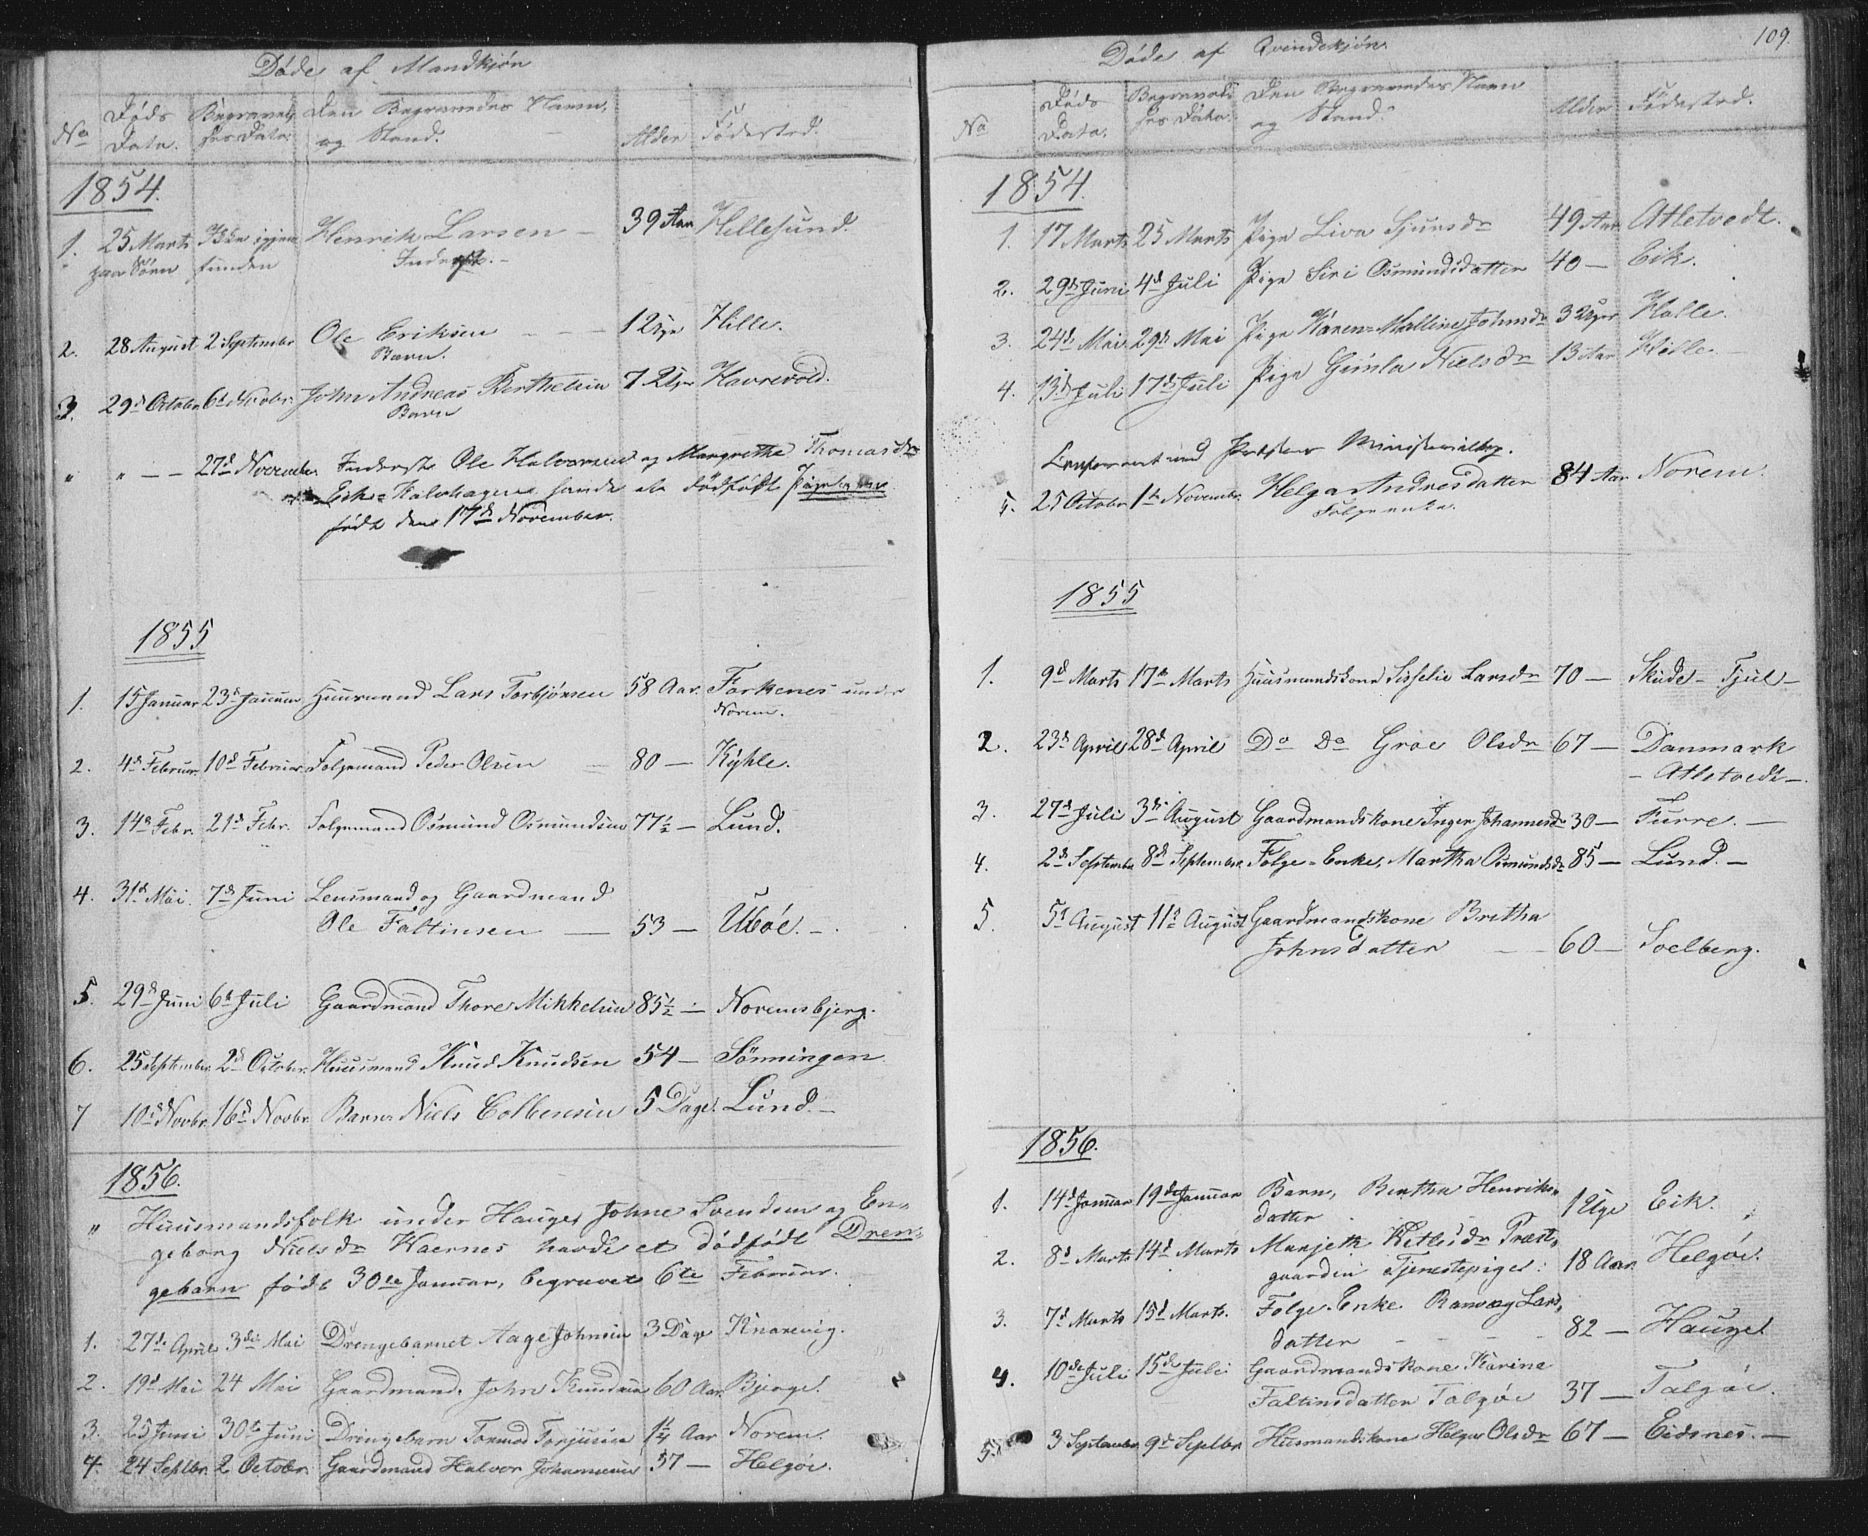 Døde af Mandkjøn
No
Døds Data.
Begravelsses Data.
Den Begravedes Navn, og Stand.
Alder
Fødested.
1854.
1. 25 Marts Henrik Larsen – 39 Aar Hillesund.
funden
2. 28 August 2 September Ole Eriksen – – – 1 Uge Hille.
Barn.
3. 29d October 6d John Andreas Berthelsen 7 Uger Havrevold.
Barn
" " – – 27d November. Inderste Ole Halvorsen og Margrethe Thomasdr
havde et dødfødt Pigebarn
født den 17d November.
1855
1. 15 Januar 23d Januar Huusmand Lars Torbjørnsen 58 Aar. Forkenes under
Norem.
2. 4d Februar 10d Februar Følgemand Peder Olsen – 80 – Kyhle.
3. 14d Febr. 21d Febr. Følgemand Osmund Osmundsen 77½ – Lund.
4. 31d Mai. 7d Juni Lensmand og Gaardmand
Ole Faltinsen – 53 – Uböe. –
5. 29d Juni 6d Juli Gaardmand Thore Mikkelsen 85½ – Noremsbjerg.
6. 25 September 2d October. Huusmand Knud Knudsen 54 – Sönningen
7 10d Novbr. 16d Novbr. Barn Niels Colbensen 5 Dage. Lund. –
1856.
" Huusmandsfolk under Hauge, Johne Svendsen og En-
geborg Nielsdr Waernes havde et dødfødt Dren-
gebarn født 30te Januar, begravet 6te Februar.
1. 27d April 3de Mai Drengebarnet Aage Johnsen 3 Dage Knarevig.
2. 19d Mai 24 Mai Gaardmand. John Knudsen 60 Aar. Bjerge.
3. 25 Juni 30te Juni Drengebarn Tormod Torjusen 1¼ Aar Norem.
4. 24 Septbr. 2 Octobr. Gaardmand Halvor Johannesen 57 – Helgöe.
109.
Døde af Qvindekjøn.
No
Døds Data.
Begravelsses Data.
Den Begravedes Navn og Stand.
Alder
Fødested.
1854.
1. 17 Marts 25 Marts Pige Liva Sjursdr 49 Aar. Atletvedt.
2. 29d Juni 4d Juli Pige Siri Osmundsdatter 40 – Eik.
3. 24d Mai 29d Mai Pige Karen-Malline Johnsdr 3 Uger Halle.
4. 13d Juli 17d Juli Pige Gunla Nielsdr 13 Aar
Ministerialbog.
5. 25 October 1te Novembr. Helga Andresdatter 84 Aar Norem.
Følgeenke.
1855
1. 9d Marts 17de Marts Huusmandskone Sisselie Larsdr 70 – Skude – Tjul –
2. 23d April 28d April Do Do Groe Olsdr 67 – Danmark
– Atletvedt –.
3. 27d Juli 3de August Gaardmandskone Inger Johannesdr 30 – Furre. –
4. 2d September 8d September. Følge-Enke, Martha Osmundsdr 85 – Lund. –
5. 5d August 11d August Gaardmandskone Britha
Johnsdatter – – 60 – Soelberg.
1856.
1. 14d Januar 19de Januar Barn, Bertha Henriks-
datter 1 Uge Eik.
2. 8d Marts 14d Marts Marjeth Ketlsdr Præst-
gaarden Tjenestepige: 18 Aar. Helgöe.
3. 7d Marts 15d Marts. Følge-Enke Ranvæg Lars-
datter – – – – 82 – Hauge.
4. 10de Juli 15de Juli Gaardmandskone Karine
Faltinsdatter Talgöe 37 – Talgöe.
5. 3 September 9d Septbr. Husmandskone Helga Olsdr 67 – Eidsnes. –